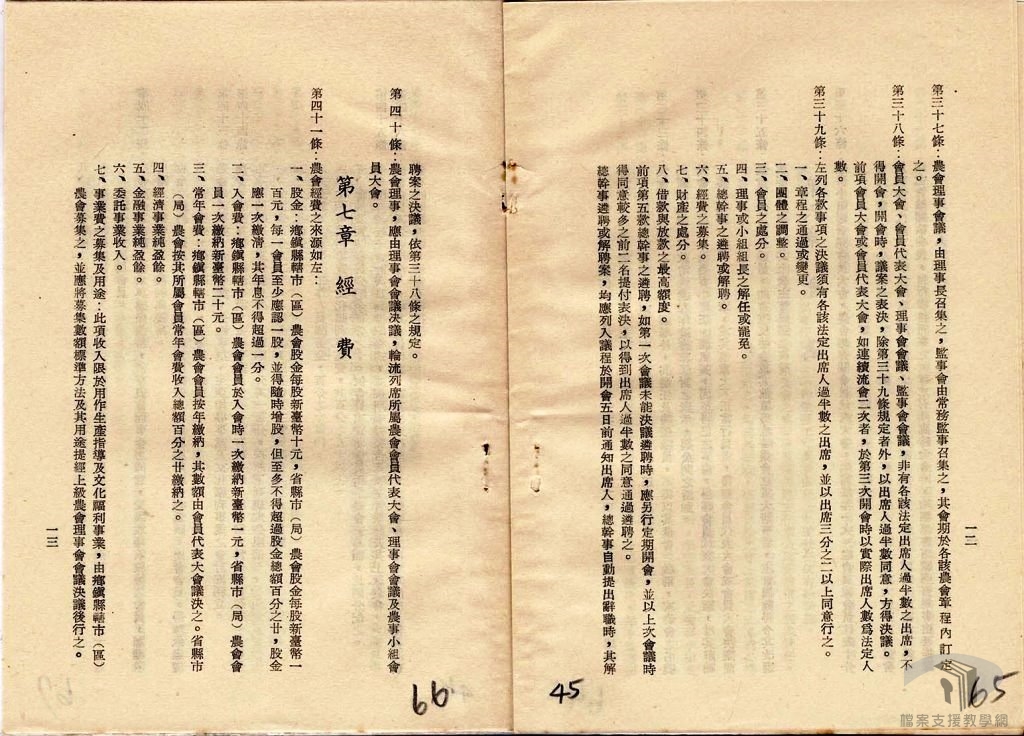 第三十七條：農會理事會議，由理事長召集之，監事會由常務監事召集之，其會期於各該農會章程內訂定
之。
第三十八條：會員大會、會員代表大會、理事會會議、監事會會議，非有各該法定出席人過半數之出席，不
得開會，開會時，議案之表決，除第三十九條規定者外，以出席人過半數同意，方得決議。
前項會員大會或會員代表大會，如連續流會二次者，於第三次開會時以實際出席人數爲法定人
數。
第三十九條：左列各款事項之決議須有各該法定出席人過半數之出席，並以出席三分之二以上同意行之。
一、章程之通過或變更。
二、團體之調整。
三、會員之處分。
四、理事或小組長之解任或罷免。
五、總幹事之遴聘或解聘。
六、經費之募集。
七、財產之處分。
八、借款與放款之最高額度。
前項第五款總幹事之遴聘，如第一次會議未能決議遴聘時，應另行定期開會，並以上次會議時
得同意較多之前二名提付表決，以得到出席人過半數之同意通過遴聘之。
總幹事遴聘或解聘案，均應列入議程於開會五日前通知出席人，總幹事自動提出辭職時，其解
一二
65
45
檔案支援教學網
聘案之決議，依第三十八條之規定。
第四十條：農會理事，應由理事會會議決議，輪流列席所屬農會會員代表大會、理事會會議及農事小組會
員大會。
第七章 經費
第四十一條：農會經費之來源如左：
一、股金：鄉鎮縣轄市（區）農會股金每股新臺幣十元，省縣市（局）農會股金每股新臺幣一
百元，每一會員至少應認一股，並得隨時增股，但至多不得超過股金總額百分之廿，股金
應一次繳清，其年息不得超過一分。
二、入會費：鄉鎮縣轄市（區）農會會員於入會時一次繳納新臺幣一元，省縣市（局）農會會
員一次繳納新臺幣二十元。
三、常年會費：鄉鎮縣轄市（區）農會會員按年繳納，其數額由會員代表大會議決之。省縣市
（局）農會按其所屬會員常年會費收入總額百分之廿繳納之。
四、經濟事業純盈餘。
五、金融事業純盈餘。
六、委託事業收入。
七、事業費之募集及用途：此項收入限於用作生產指導及文化福利事業，由鄉鎮縣轄市（區）
農會募集之，並應將募集數額標準方法及其用途提經上級農會理事會會議決議後行之。
一三
66